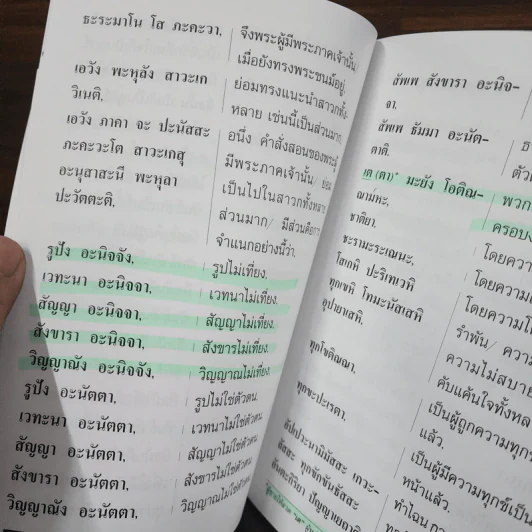 ธะระมาโน โส ภะคะวา,
เอวัง พะหุลัง สาวะเก
วิเนติ,
เอวัง ภาคา จะ ปะนัสสะ
ภะคะวะโต สาวะเกสุ
อะนุสาสะนี พะหุลา
ปะวัตตะติ,
รูปัง อะนิจจัง,
เวทะนา อะนิจจา,
สัญญา อะนิจจา,
สังขารา อะนิจจา,
วิญญาณัง อะนิจจัง,
รูปัง อะนัตตา,
เวทะนา อะนัตตา,
สัญญา อะนัตตา,
สังขารา อะนัตตา,
วิญญาณัง อะนัตตา,
จึงพระผู้มีพระภาคเจ้านั้น
เมื่อยังทรงพระชนม์อยู่,
ย่อมทรงแนะนำสาวกทั้ง-
หลาย เช่นนี้เป็นส่วนมาก,
อนึ่ง คำสั่งสอนของพระผู้
มีพระภาคเจ้านั้น/ ย่อม
เป็นไปในสาวกทั้งหลาย
ส่วนมาก/ มีส่วนคือการ
จำแนกอย่างนี้ว่า,
รูปไม่เที่ยง,
เวทนาไม่เที่ยง,
สัญญาไม่เที่ยง,
สังขารไม่เที่ยง,
วิญญาณไม่เที่ยง,
รูปไม่ใช่ตัวตน,
เวทนาไม่ใช่ตัวตน,
สัญญาไม่ใช่ตัวตน,
สังขารไม่ใช่ตัวตน,
วิญญาณไม่ใช่ตัวตน,
สัพเพ สังขารา อะนิจ-
จา,
สัพเพ ธัมมา อะนัต-
ตาติ,
เต (ตา)* มะยัง โอติณ-
ณามหะ,
ชาติยา,
ชะรามะระเณนะ,
โสเกหิ ปะริเทเวหิ
ทุกเขหิ โทมะนัสเสหิ
อุปายาเสหิ,
ทุกโขติณณา,
ทุกขะปะเรตา,
อัปเปวะนามิมัสสะ เกวะ-
ลัสสะ ทุกขักขันธัสสะ
อันตะกิริยา ปัญญาเยถาติ
พวก
ครอบง
โดยควา
โดยควา
โดยควา
โดยความโ
รำพัน/ ควา
ความไม่สบาย
คับแค้นใจทั้งหล
เป็นผู้ถูกความทุกข
แล้ว,
เป็นผู้มีความทุกข์เป็น
หน้าแล้ว,
ทำไฉนกา